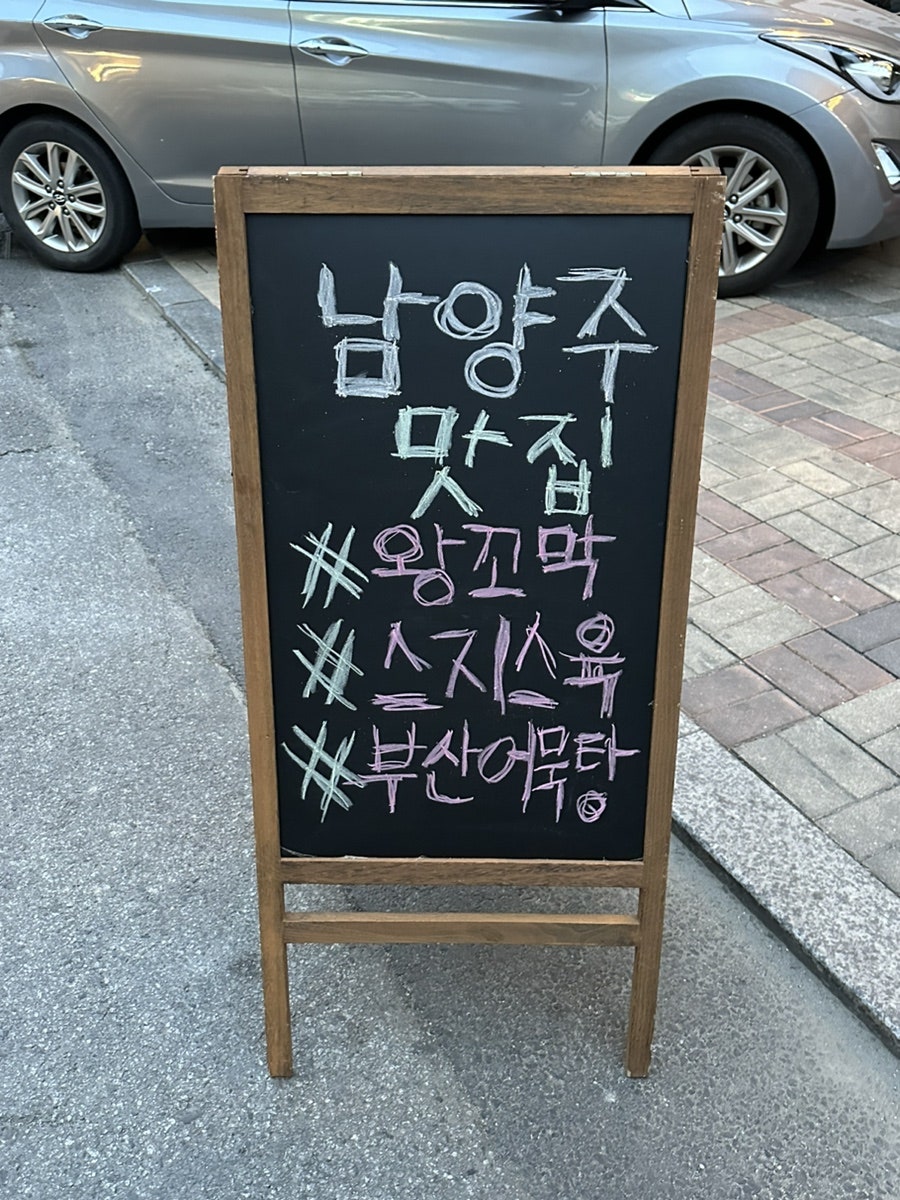 남양주
맛집
#왕꼬막
#스지스육
#부산어묵탕